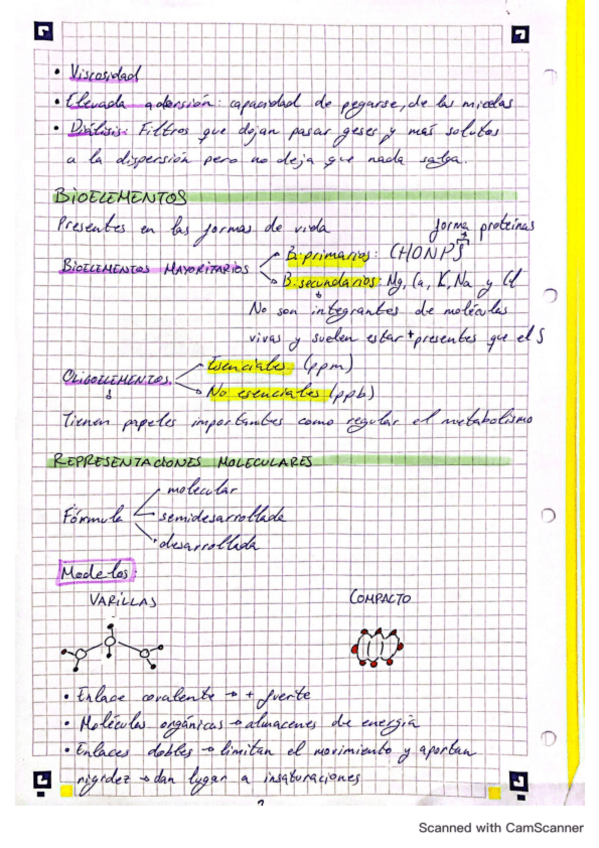 • Viscosidad
• Elevada adorsión: capacidad de pegarse, de las micelas
• Diálisis: Filtros que dejan pasar gases y más solutos
a la dispersión pero no deja que nada salga.
BIOELEMENTOS
Presentes en las formas de vida
forma proteínas
BIOELEMENTOS MAYORITARIOS
B. primarios: CHONPS
B. secundarios: Mg, Ca, K, Na y Cl
No son integrantes de moléculas
vivas y suelen estar + presentes que el S
OLIGOELEMENTOS
Esenciales (ppm)
No esenciales (ppb)
Tienen papeles importantes como regular el metabolismo
REPRESENTACIONES MOLECULARES
Fórmula
molecular
semidesarrollada
desarrollada
Modelos:
VARILLAS
COMPACTO
• Enlace covalente → + fuerte
• Moléculas orgánicas → almacenes de energía
• Enlaces dobles → limitan el movimiento y aportan
rigidez → dan lugar a insaturaciones
Scanned with CamScanner